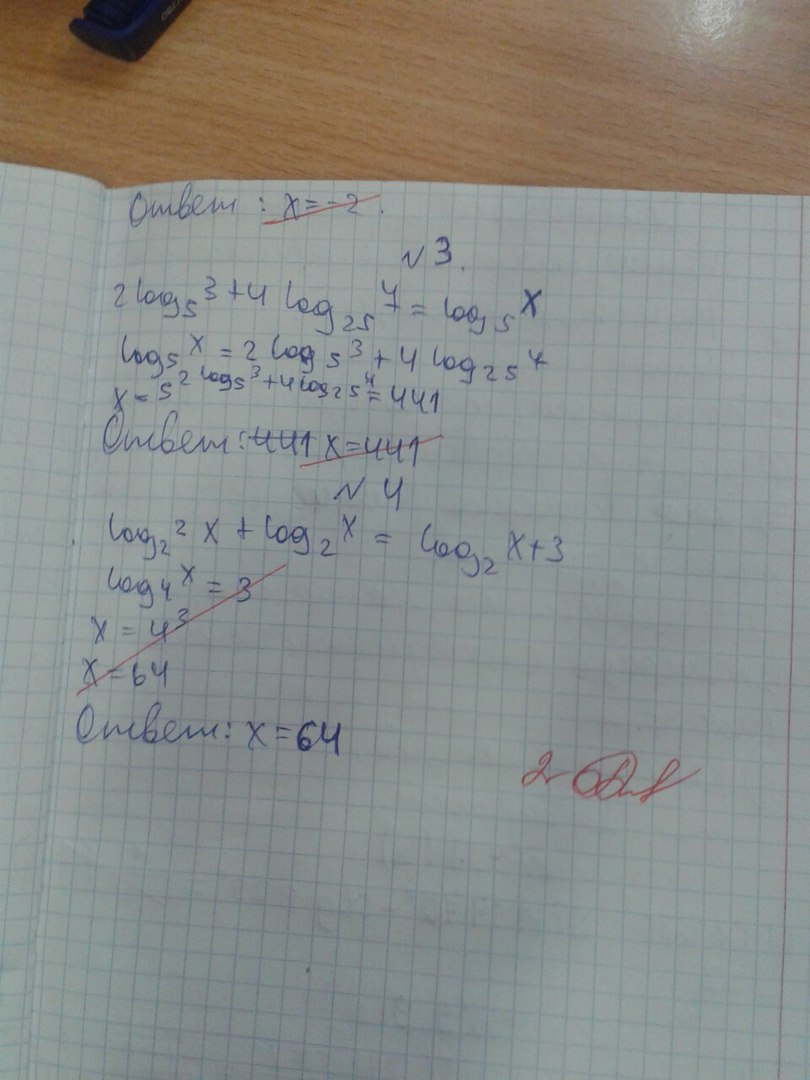 Ответ: x = -2.
№3.
2 log₅ 3 + 4 log₂₅ 7 = log₅ x
log₅ x = 2 log₅ 3 + 4 log₂₅ 7
x = 5^(2 log₅ 3 + 4 log₂₅ 7) = 441
Ответ: 441 x = 441
№ 4
log₂² x + log₂ x = log₂ x + 3
log₄ x = 3
x = 4³
x = 64
Ответ: x = 64
2